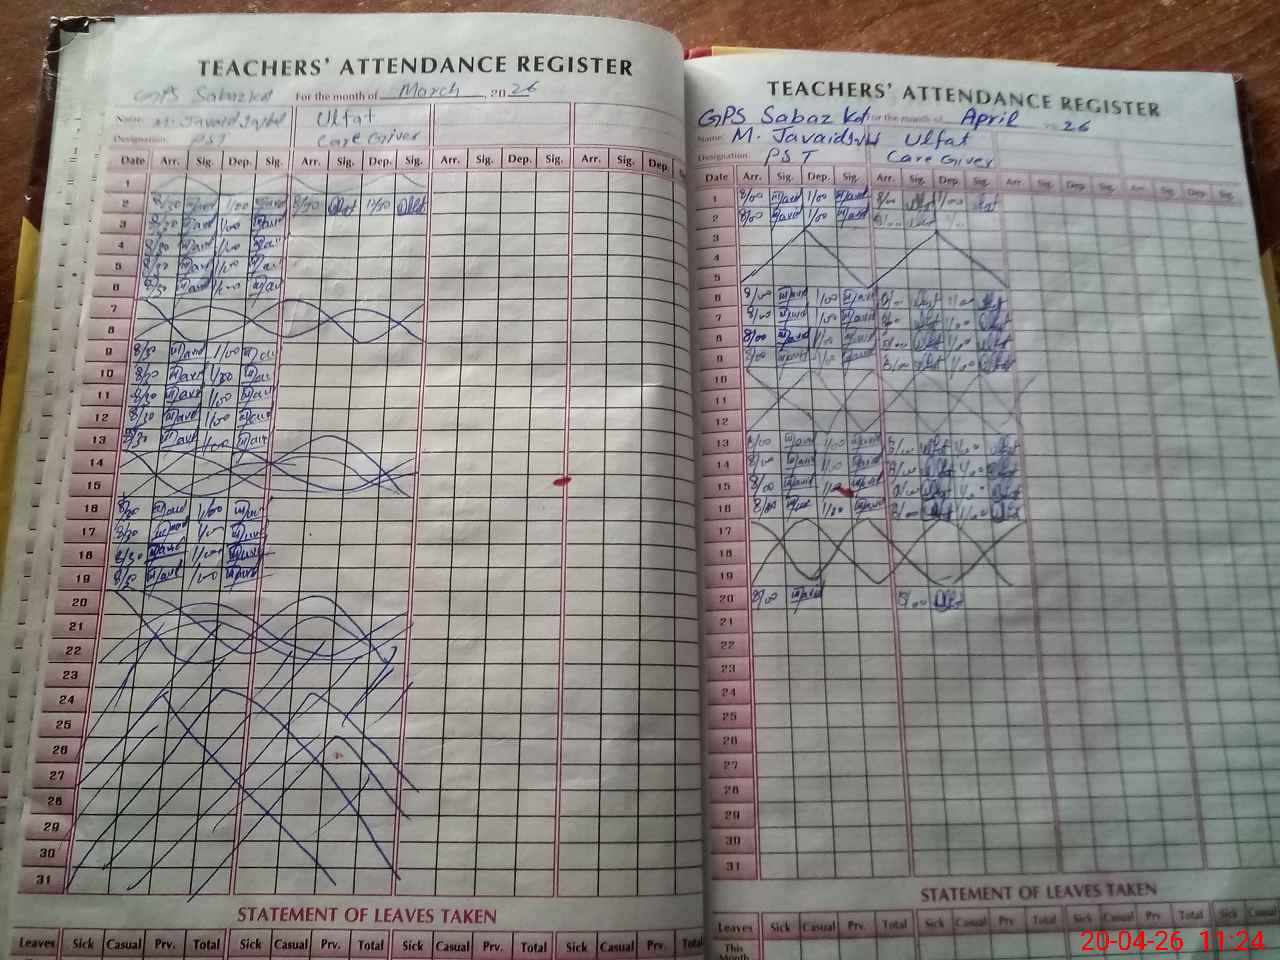 TEACHERS' ATTENDANCE REGISTER
GPS Sabaz kd For the month of March, 2026
Name: M. Javaid Iqbal Ulfat
Designation: PST Care Giver
Date Arr. Sig. Dep. Sig. Arr. Sig. Dep. Sig. Arr. Sig. Dep. Sig. Arr. Sig. Dep.
1
2 8/30 Javid 1/00 Javid 8/30 Ulfat 12/30 Ulfat
3 8/30 Javid 1/00 Javid
4 8/30 Javid 1/00 Javid
5 8/30 Javid 1/00 Javid
6 8/30 Javid 1/00 Javid
7
8
9 8/30 Javid 1/00 Javid
10 8/30 Javid 1/00 Javid
11 8/30 Javid 1/00 Javid
12 8/30 Javid 1/00 Javid
13 8/30 Javid 1/00 Javid
14
15
16 8/30 Javid 1/00 Javid
17 8/30 Javid 1/00 Javid
18 8/30 Javid 1/00 Javid
19 8/30 Javid 1/00 Javid
20
21
22
23
24
25
26
27
28
29
30
31
STATEMENT OF LEAVES TAKEN
Leaves Sick Casual Prv. Total Sick Casual Prv. Total Sick Casual Prv. Total Sick Casual Prv. Total
TEACHERS' ATTENDANCE REGISTER
GPS Sabaz Kd For the month of April 2026
Name: M. Javaid Iqbal Ulfat
Designation: PST Care Giver
Date Arr. Sig. Dep. Sig. Arr. Sig. Dep. Sig. Arr. Sig. Dep. Sig. Arr. Sig. Dep. Sig.
1 8/00 Javid 1/00 Javid 8/00 Ulfat 1/00 Ulfat
2 8/00 Javid 1/00 Javid 8/00 Ulfat
3
4
5
6 8/00 Javid 1/00 Javid 8/00 Ulfat 1/00 Ulfat
7 8/00 Javid 1/00 Javid 8/00 Ulfat 1/00 Ulfat
8 8/00 Javid 1/00 Javid 8/00 Ulfat 1/00 Ulfat
9 8/00 Javid 1/00 Javid 8/00 Ulfat 1/00 Ulfat
10
11
12
13 8/00 Javid 1/00 Javid 8/00 Ulfat 1/00 Ulfat
14 8/00 Javid 1/00 Javid 8/00 Ulfat 1/00 Ulfat
15 8/00 Javid 1/00 Javid 8/00 Ulfat 1/00 Ulfat
16 8/00 Javid 1/00 Javid 8/00 Ulfat 1/00 Ulfat
17
18
19
20 8/00 Javid 8/00 Ulfat
21
22
23
24
25
26
27
28
29
30
31
STATEMENT OF LEAVES TAKEN
Leaves Sick Casual Prv. Total Sick Casual Prv. Total Sick Casual Prv. Total Sick Casual
This Month
20-04-26 11:24